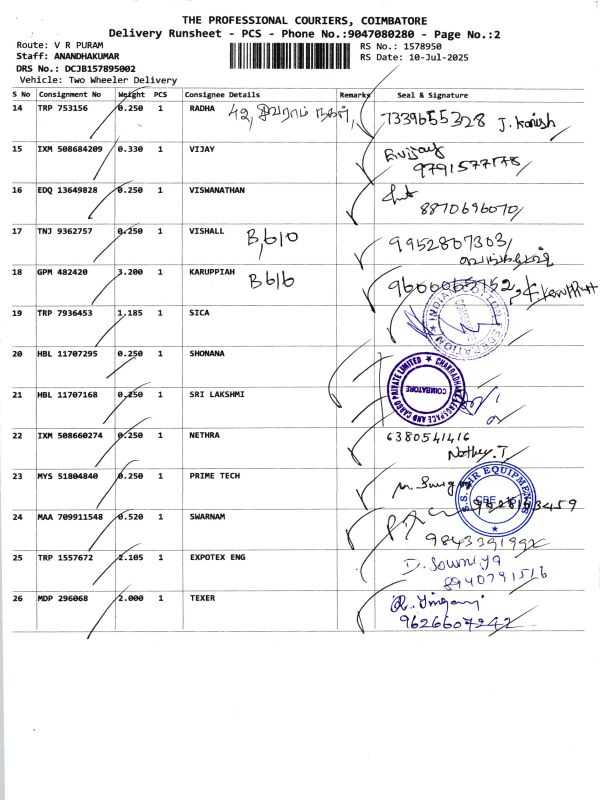 THE PROFESSIONAL COURIERS, COIMBATORE
Delivery Runsheet - PCS - Phone No.:9047080280 - Page No.:2
Route: V R PURAM RS No.: 1578950
Staff: ANANDHAKUMAR RS Date: 10-Jul-2025
DRS No.: DCJB157895002
Vehicle: Two Wheeler Delivery
S No Consignment No Weight PCS Consignee Details Remarks Seal & Signature
14 TRP 753156 0.250 1 RADHA 42, நகர், 7339655328
15 IXM 508684209 0.330 1 VIJAY
9791577178
16 EDQ 13649828 0.250 1 VISWANATHAN
8870696070
17 TNJ 9362757 0.250 1 VISHALL B,610 9952807303
18 GPM 482420 3.200 1 KARUPPIAH B616
19 TRP 7936453 1.185 1 SICA
20 HBL 11707295 0.250 1 SHONANA
21 HBL 11707168 0.250 1 SRI LAKSHMI COIMBATORE
22 IXM 508660274 0.250 1 NETHRA 6380541416
23 MYS 51804840 0.250 1 PRIME TECH
24 MAA 709911548 0.520 1 SWARNAM
25 TRP 1557672 2.105 1 EXPOTEX ENG D. Sowmiya
8940791516
26 MDP 296068 2.000 1 TEXER
9626607242